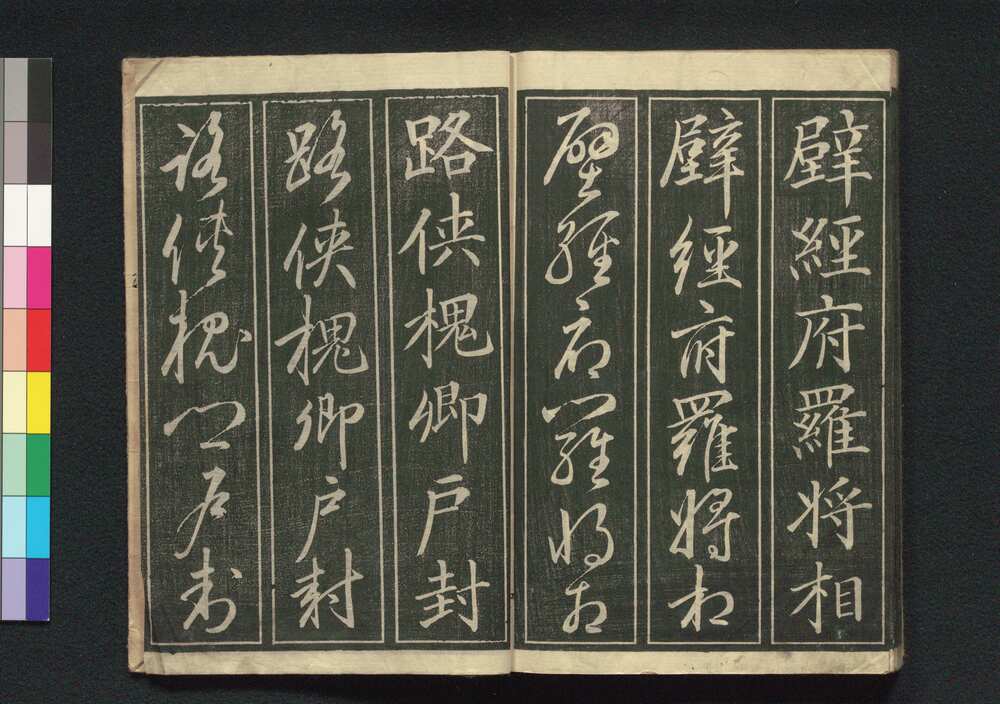 壁經府羅将相
壁經府羅將相
壁經府羅将相
路侠槐卿戸封
路侠槐卿戸封
路侠槐卿戸封